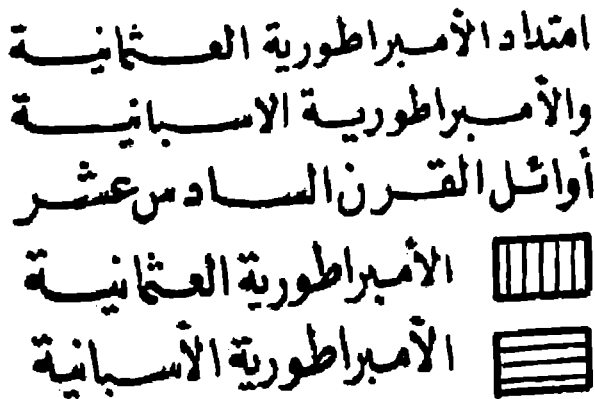 امتداد الأمبراطورية العثمانية
والأمبراطورية الاسبانية
أوائل القرن السادس عشر
الأمبراطورية العثمانية
الأمبراطورية الأسبانية